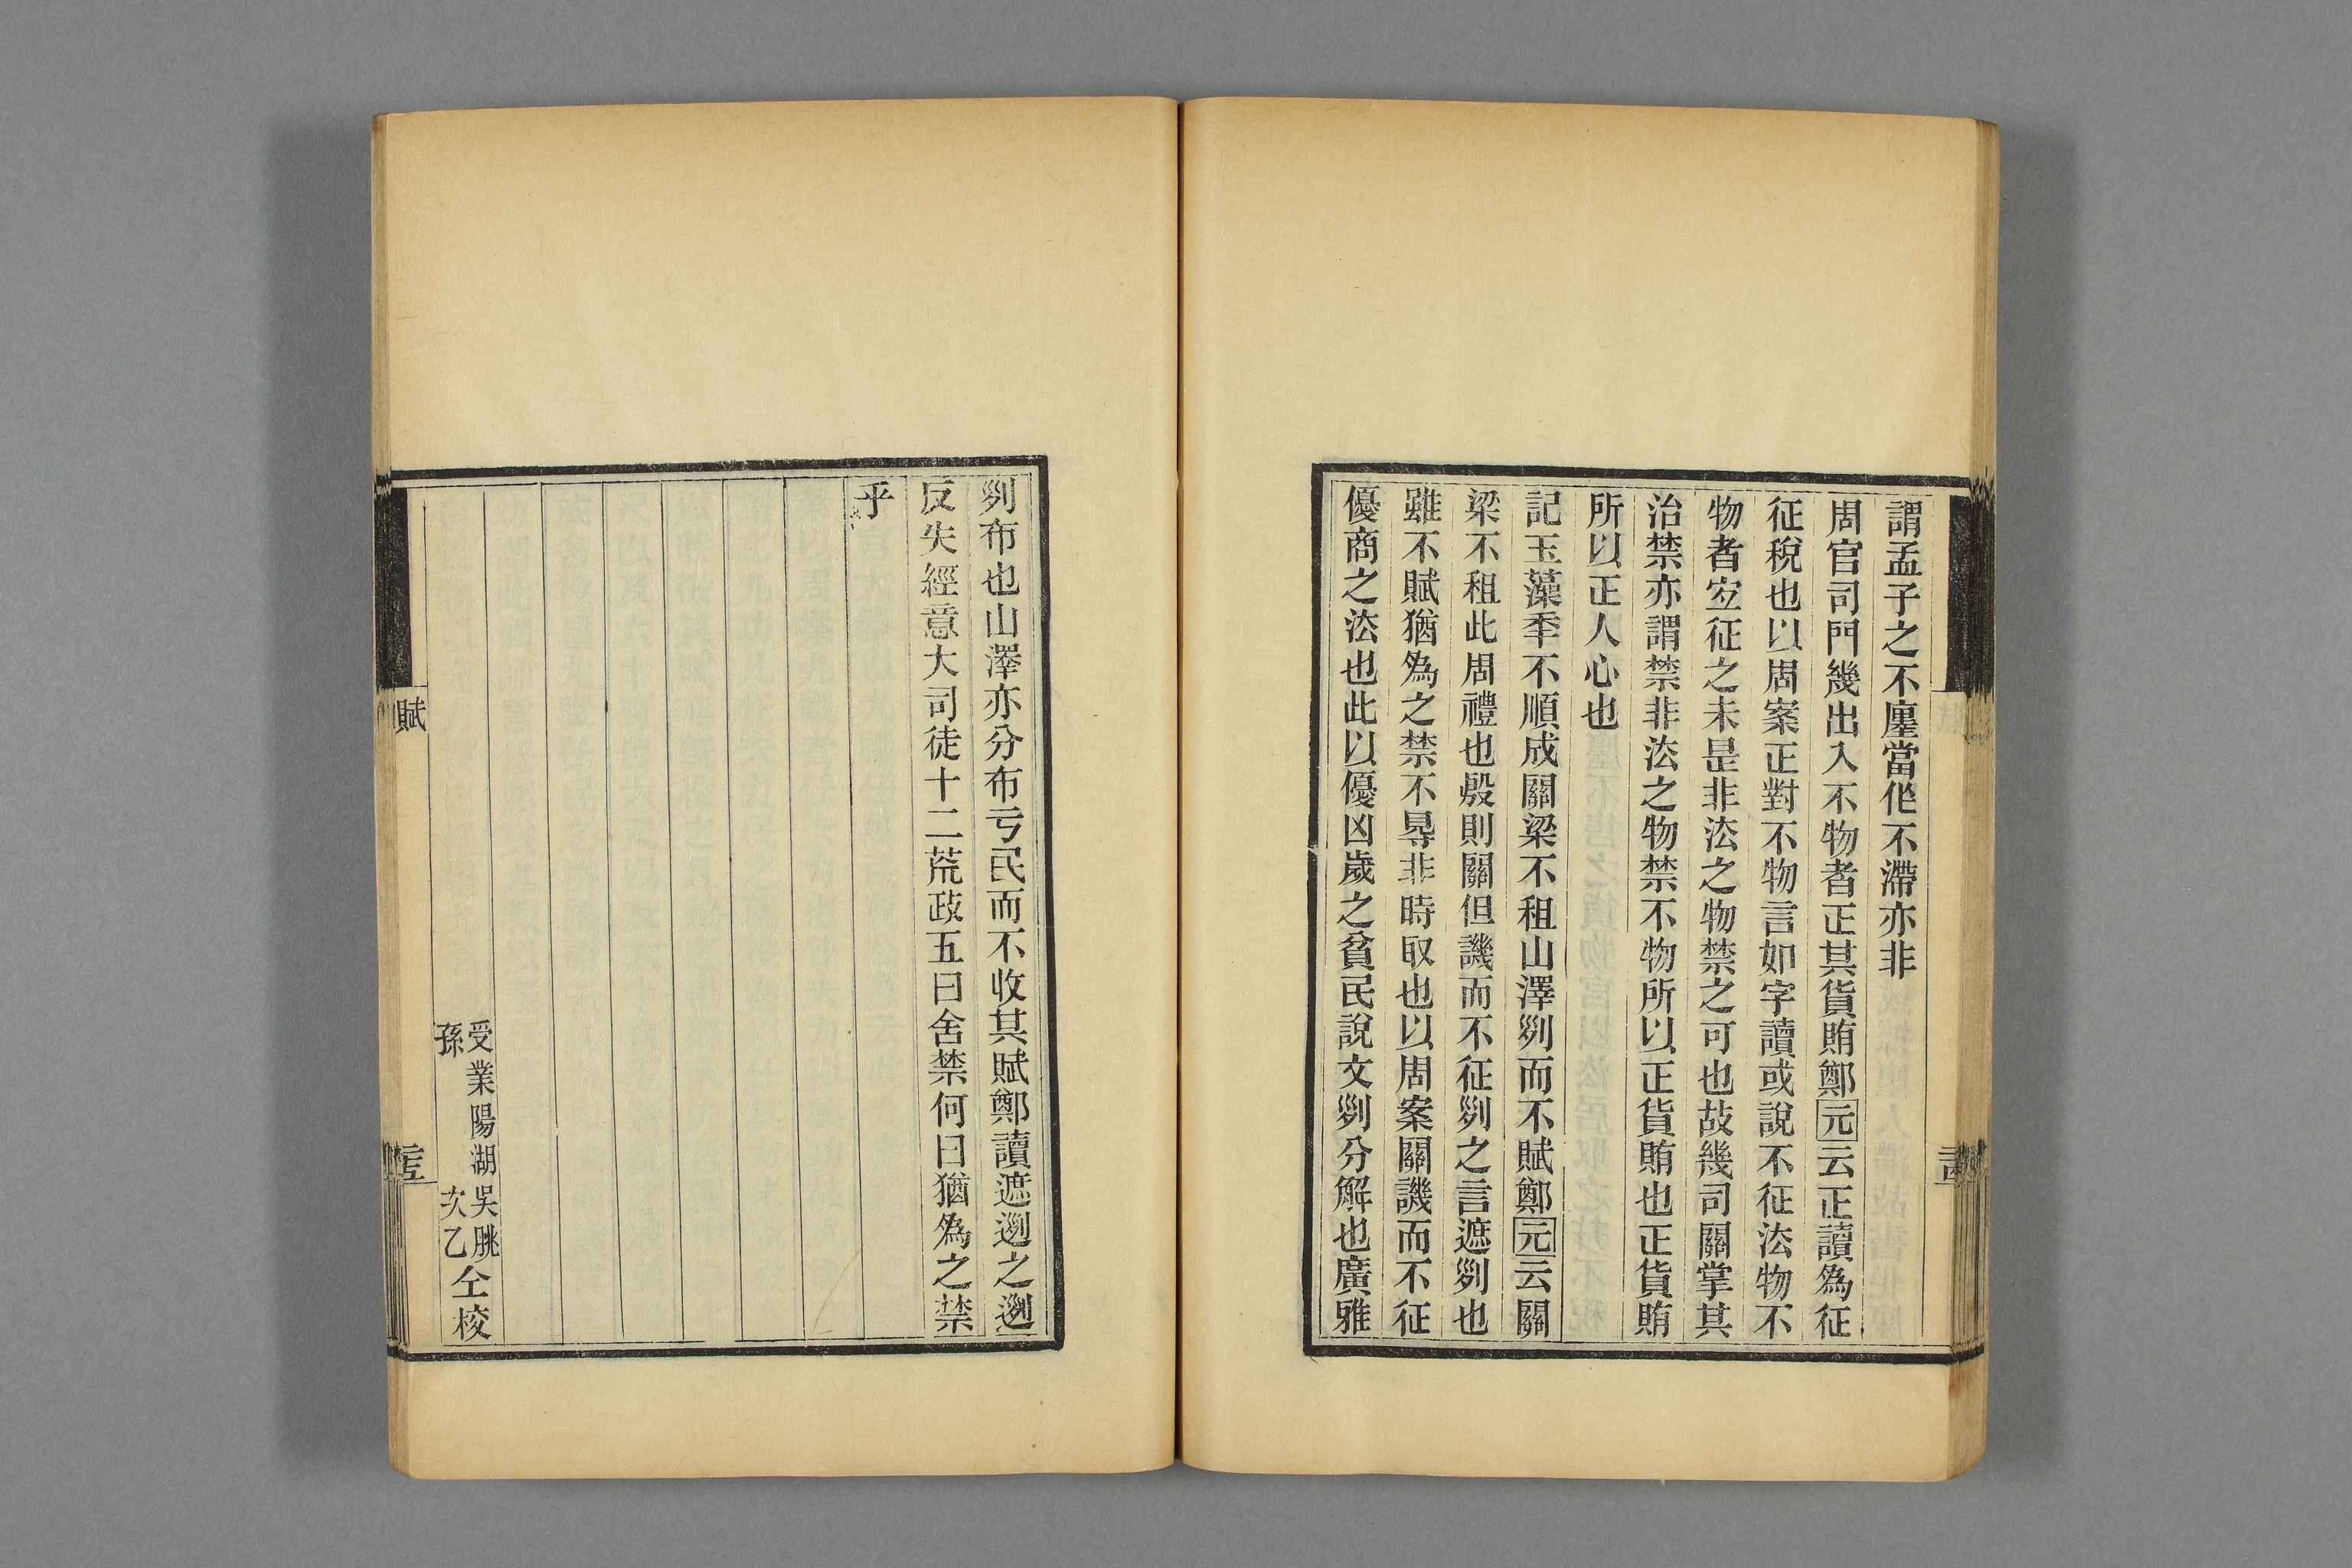 謂孟子之不廛當作不滯亦非
周官司門幾出入不物者正其貨賄鄭元云正讀為征
征稅也以周案正對不物言如字讀或說不征法物不
物者空征之未是非法之物禁之可也故幾司關掌其
治禁亦謂禁非法之物禁不物所以正貨賄也正貨賄
所以正人心也
記玉藻秊不順成關梁不租山澤列而不賦鄭元云關
梁不租此周禮也殷則關但譏而不征列之言遮列也
雖不賦猶為之禁不得非時取也以周案關譏而不征
優商之法也此以優凶歲之貧民說文列分解也廣雅
列布也山澤亦分布亏民而不收其賦鄭讀遮迾之迾
反失經意大司徒十二荒政五曰舍禁何曰猶為之禁
乎
受業陽湖吳朓
孫 次乙
仝校
賦